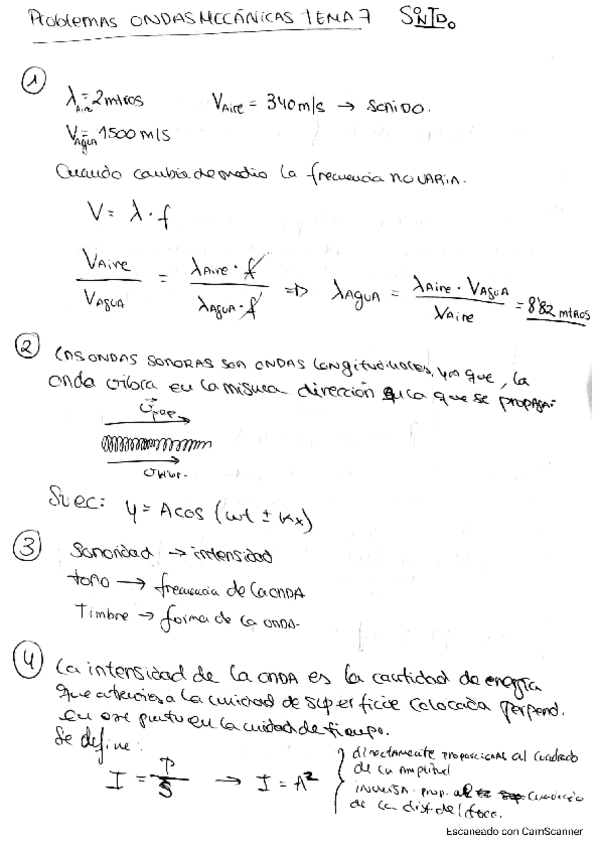 Problemas ONDAS MECÁNICAS TEMA 7 SONIDO
① λAire = 2 mtros VAire = 340 m/s → SONIDO.
VAGUA = 1500 m/s
Cuando cambia de medio la frecuencia NO VARIA.
V = λ · f
VAire / VAGUA = λAire · f / λAGUA · f => λAGUA = λAire · VAGUA / VAire = 8'82 mtros
② LAS ONDAS SONORAS SON ONDAS Longitudinales, ya que, la
onda vibra en la misma dirección en la que se propaga.
Su ec: y = A cos (ωt ± Kx)
③ Sonoridad → intensidad
tono → frecuencia de la ONDA
Timbre → forma de la onda.
④ La intensidad de la ONDA es la cantidad de energía
que atraviesa la unidad de superficie colocada perpend.
en ese punto en la unidad de tiempo.
Se define:
I = P / S → I = A² directamente proporcional al cuadrado
de su Amplitud
inversa. prop. al cuadrado
de la dist del foco.
Escaneado con CamScanner